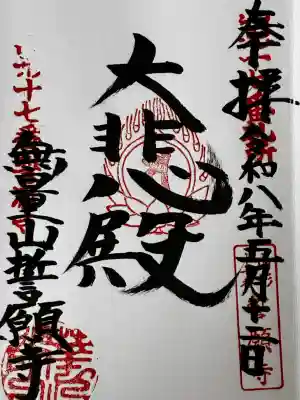 奉拝
令和八年五月十二日
大悲殿
十七番
無量山誓願寺